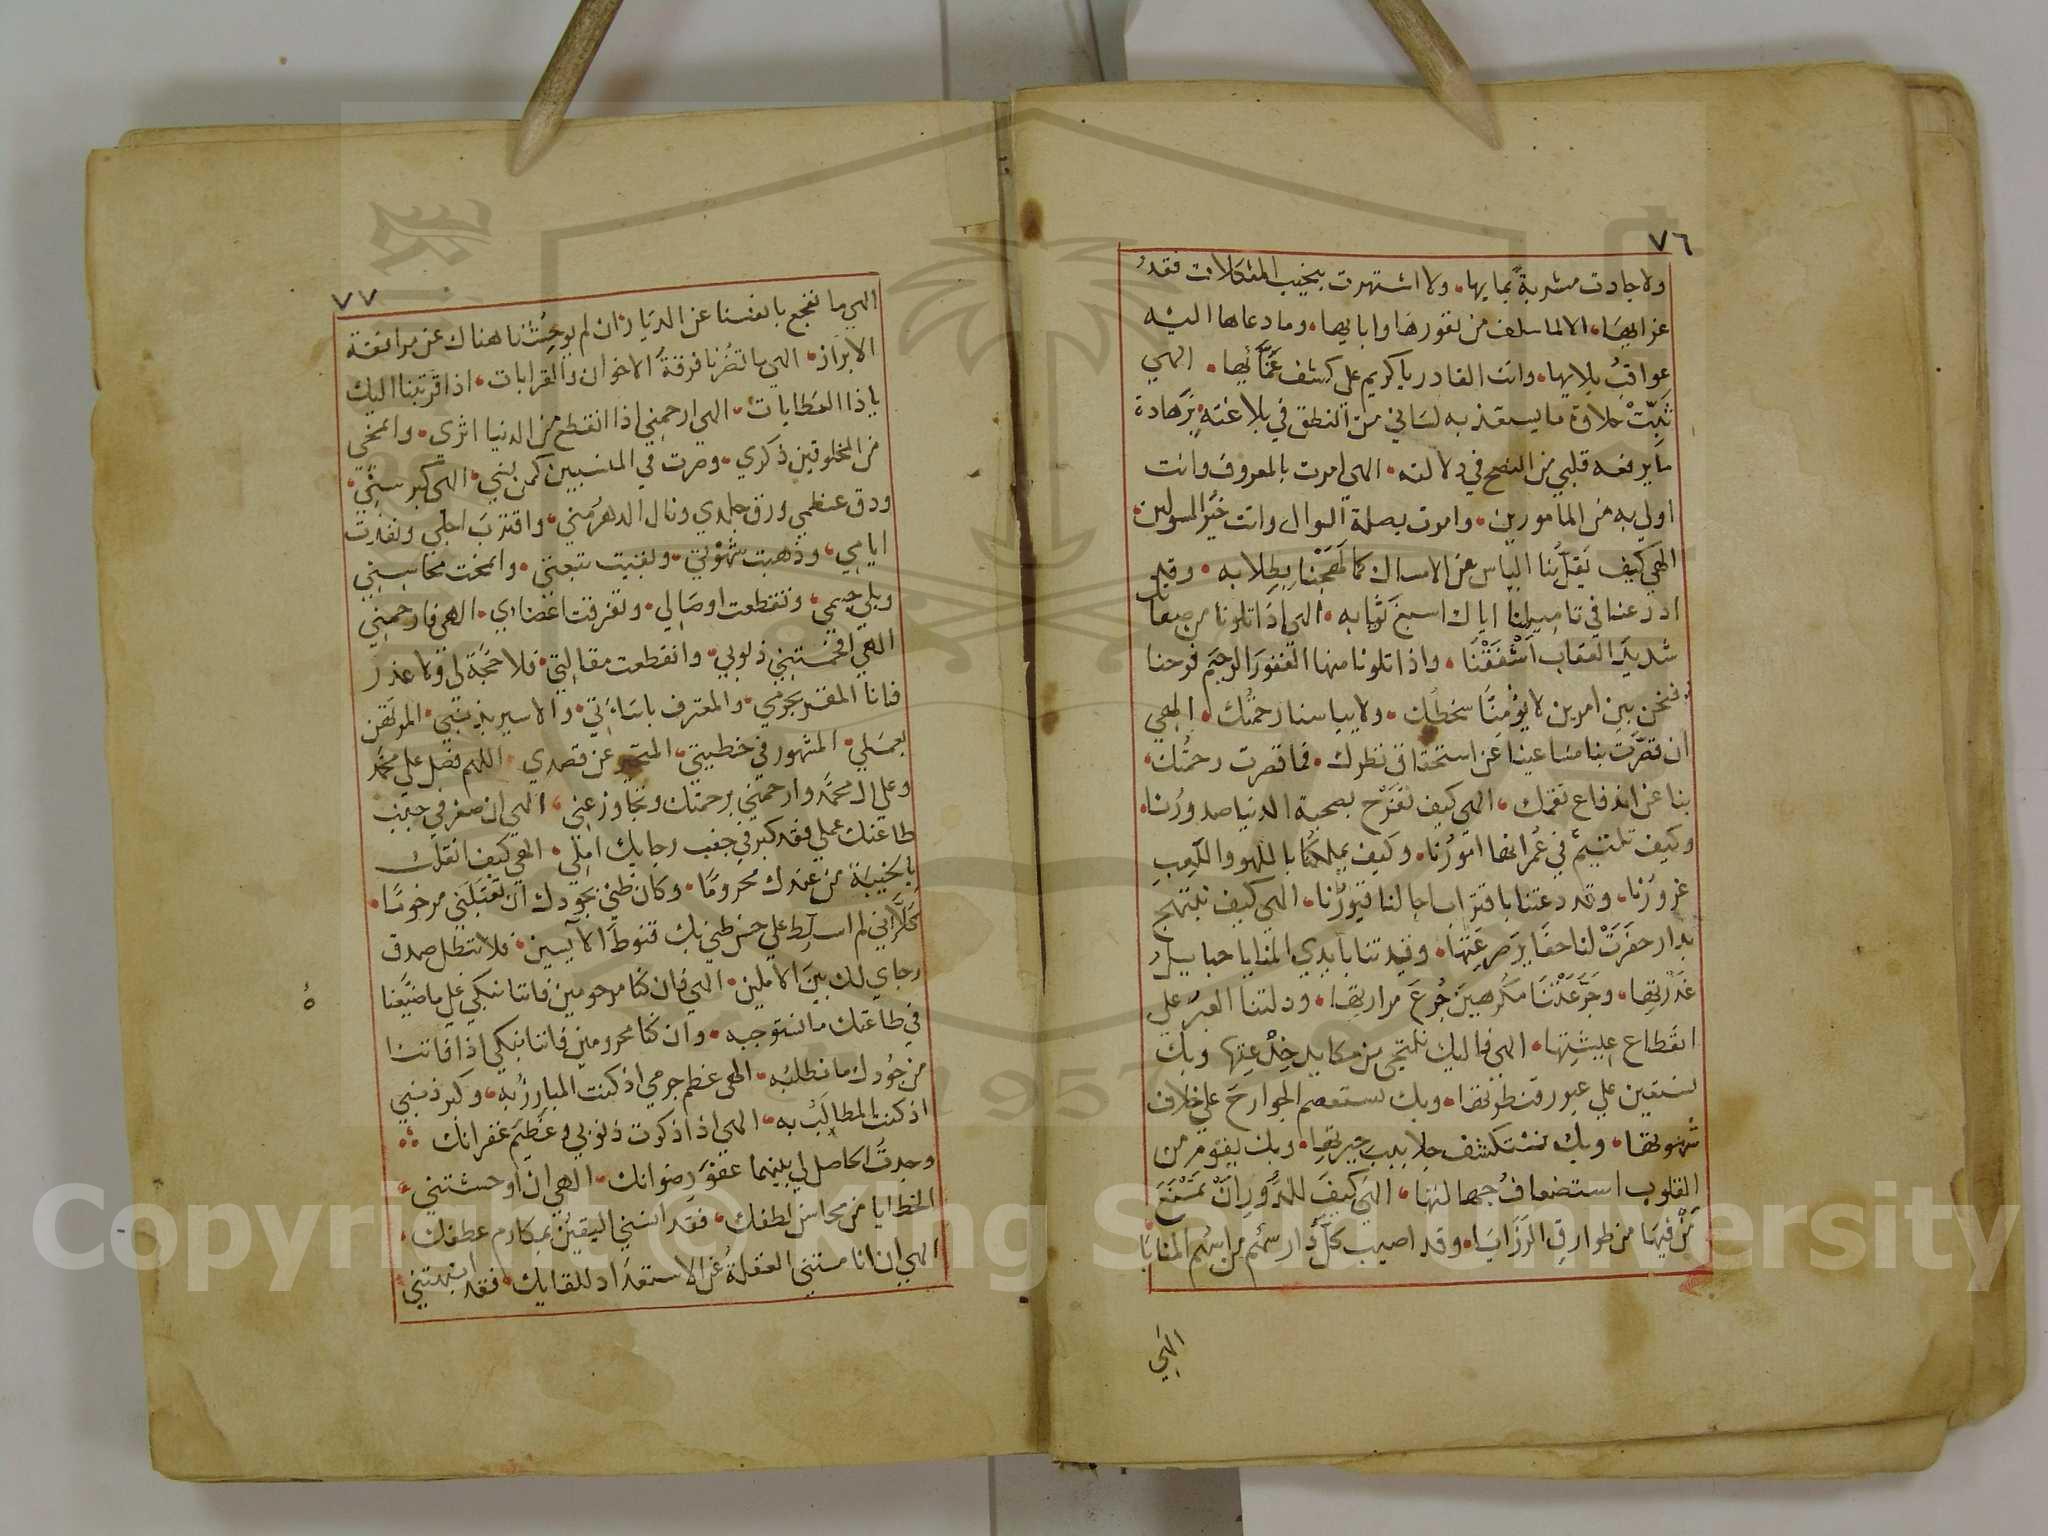 ٧٦
ولا جادت مشربة بمايها، ولا اشتهرت بنجيب المشكلات فقد
عزايها، الا لما سلف من نفورها وابايها، وما دعاها اليه
عواقب بلايها، وانت القادر يا كريم على كشف غمائها، الهي
ثبت حلاوة ما يستعذبه لساني من النطق في بلاغته بزهادة
ما يرفعه قلبي من النصح في دلالته، الهي امرت بالمعروف وانت
اولي به من المامورين، وامرت بصلة السوال وانت خير المسولين
الهي كيف يقبل بنا الياس عن الامساك كما لهجنا بطلابه، وقد
ادرعنا في تاميلنا اياك اسبغ ثوابه، الهي اذا تلونا من صفاتك
شديد العقاب اشفقنا، واذا تلونا منها الغفور الرحيم فرحنا
فنحن بين امرين لا يؤمننا سخطك، ولا يياسنا رحمتك، الهي
ان قصرت بنا مساعينا عن استحقاق نظرك، فما قصرت رحمتك،
بنا عن اندفاع نقمك، الهي كيف تفرح بصحبة الدنيا صدورنا،
وكيف تلتيم في عمرانها امورنا، وكيف يملكنا باللهو واللعب
غرورنا، وقد دعتنا باقتراب اجالنا قبورنا، الهي كيف نبتهج
بدار حفرت لنا حفاير صرعتها، وقيدتنا بايدي المنايا حبايل
غدرتها، وجرعتنا مكرهين جرع مرارتها، ودلتنا العبر على
انقطاع عيشتها، الهي فاليك نلتجي من مكايد خدعتها وبك
نستعين علي عبور قنطرتها، وبك نستعصم الجوارح على خلاف
شهوتها، وبك نستكشف جلابيب حيرتها، وبك يقوم من
القلوب استصعاف جهالتها، الهي كيف للدور ان تمنع
من فيها من طوارق الرزايا، وقد اصيب كل دار سهم من اسهم المنايا
الهي
٧٧
الهي ما نفجع بانفسنا عن الديار، ان لم توحشنا هناك عن مرافقة
الابرار، الهي ما تضرنا فرقة الاخوان والقرابات، اذا قربتنا اليك
يا ذا العطايات، الهي ارحمني اذا انقطع من الدنيا اثري، وامحى
من المخلوقين ذكري، وصرت في المنسيين كمن نسي، الهي كبر سني،
ودق عظمي ورق جلدي ونال الدهر مني، واقترب اجلي ونفدت
ايامي، وذهبت شهوتي، وبقيت تبعتي، وامحت محاسني
وبلي جسمي، وتقطعت اوصالي، وتفرقت اعضاي، الهي فارحمني
الهي افحمتني ذنوبي، وانقطعت مقالتي، فلا حجة لي ولا عذر
فانا المقر بجرمي، والمعترف باساءتي، والاسير بذنبي، المرتهن
بعملي، المتهور في خطيتي، المتحير عن قصدي، اللهم فصل على محمد
وعلي ال محمد وارحمني برحمتك وتجاوز عني، الهي ان صغر في جنب
طاعتك عملي فقد كبر في جنب رجايك املي، الهي كيف انقلب
بالخيبة من عندك محروما، وكان ظني بجودك ان تقبلني مرحوما،
كلا اني لم اسلط علي حسن ظني بك قنوط الآيسين، فلا تبطل صدق
رجاي لك بين الاملين، الهي فان كنا مرحومين فاننا نبكي علي ما ضيعنا
في طاعتك ما نستوجبه، وان كنا محرومين فاننا نبكي اذا فاتنا
من جودك ما نطلبه، الهي عظم جرمي اذ كنت المبارز به، وكبر ذنبي
اذ كنت المطالب به، الهي اذا ذكرت ذنوبي وعظيم غفرانك
وجدت الحاصل لي بينهما عفو رضوانك، الهي ان اوحشتني
الخطايا من محاسن لطفك، فقد انسني اليقين بمكارم عطفك،
الهي ان انامتني الغفلة عن الاستعداد للقايك، فقد انبهتني
Copyright © King Saud University
1957